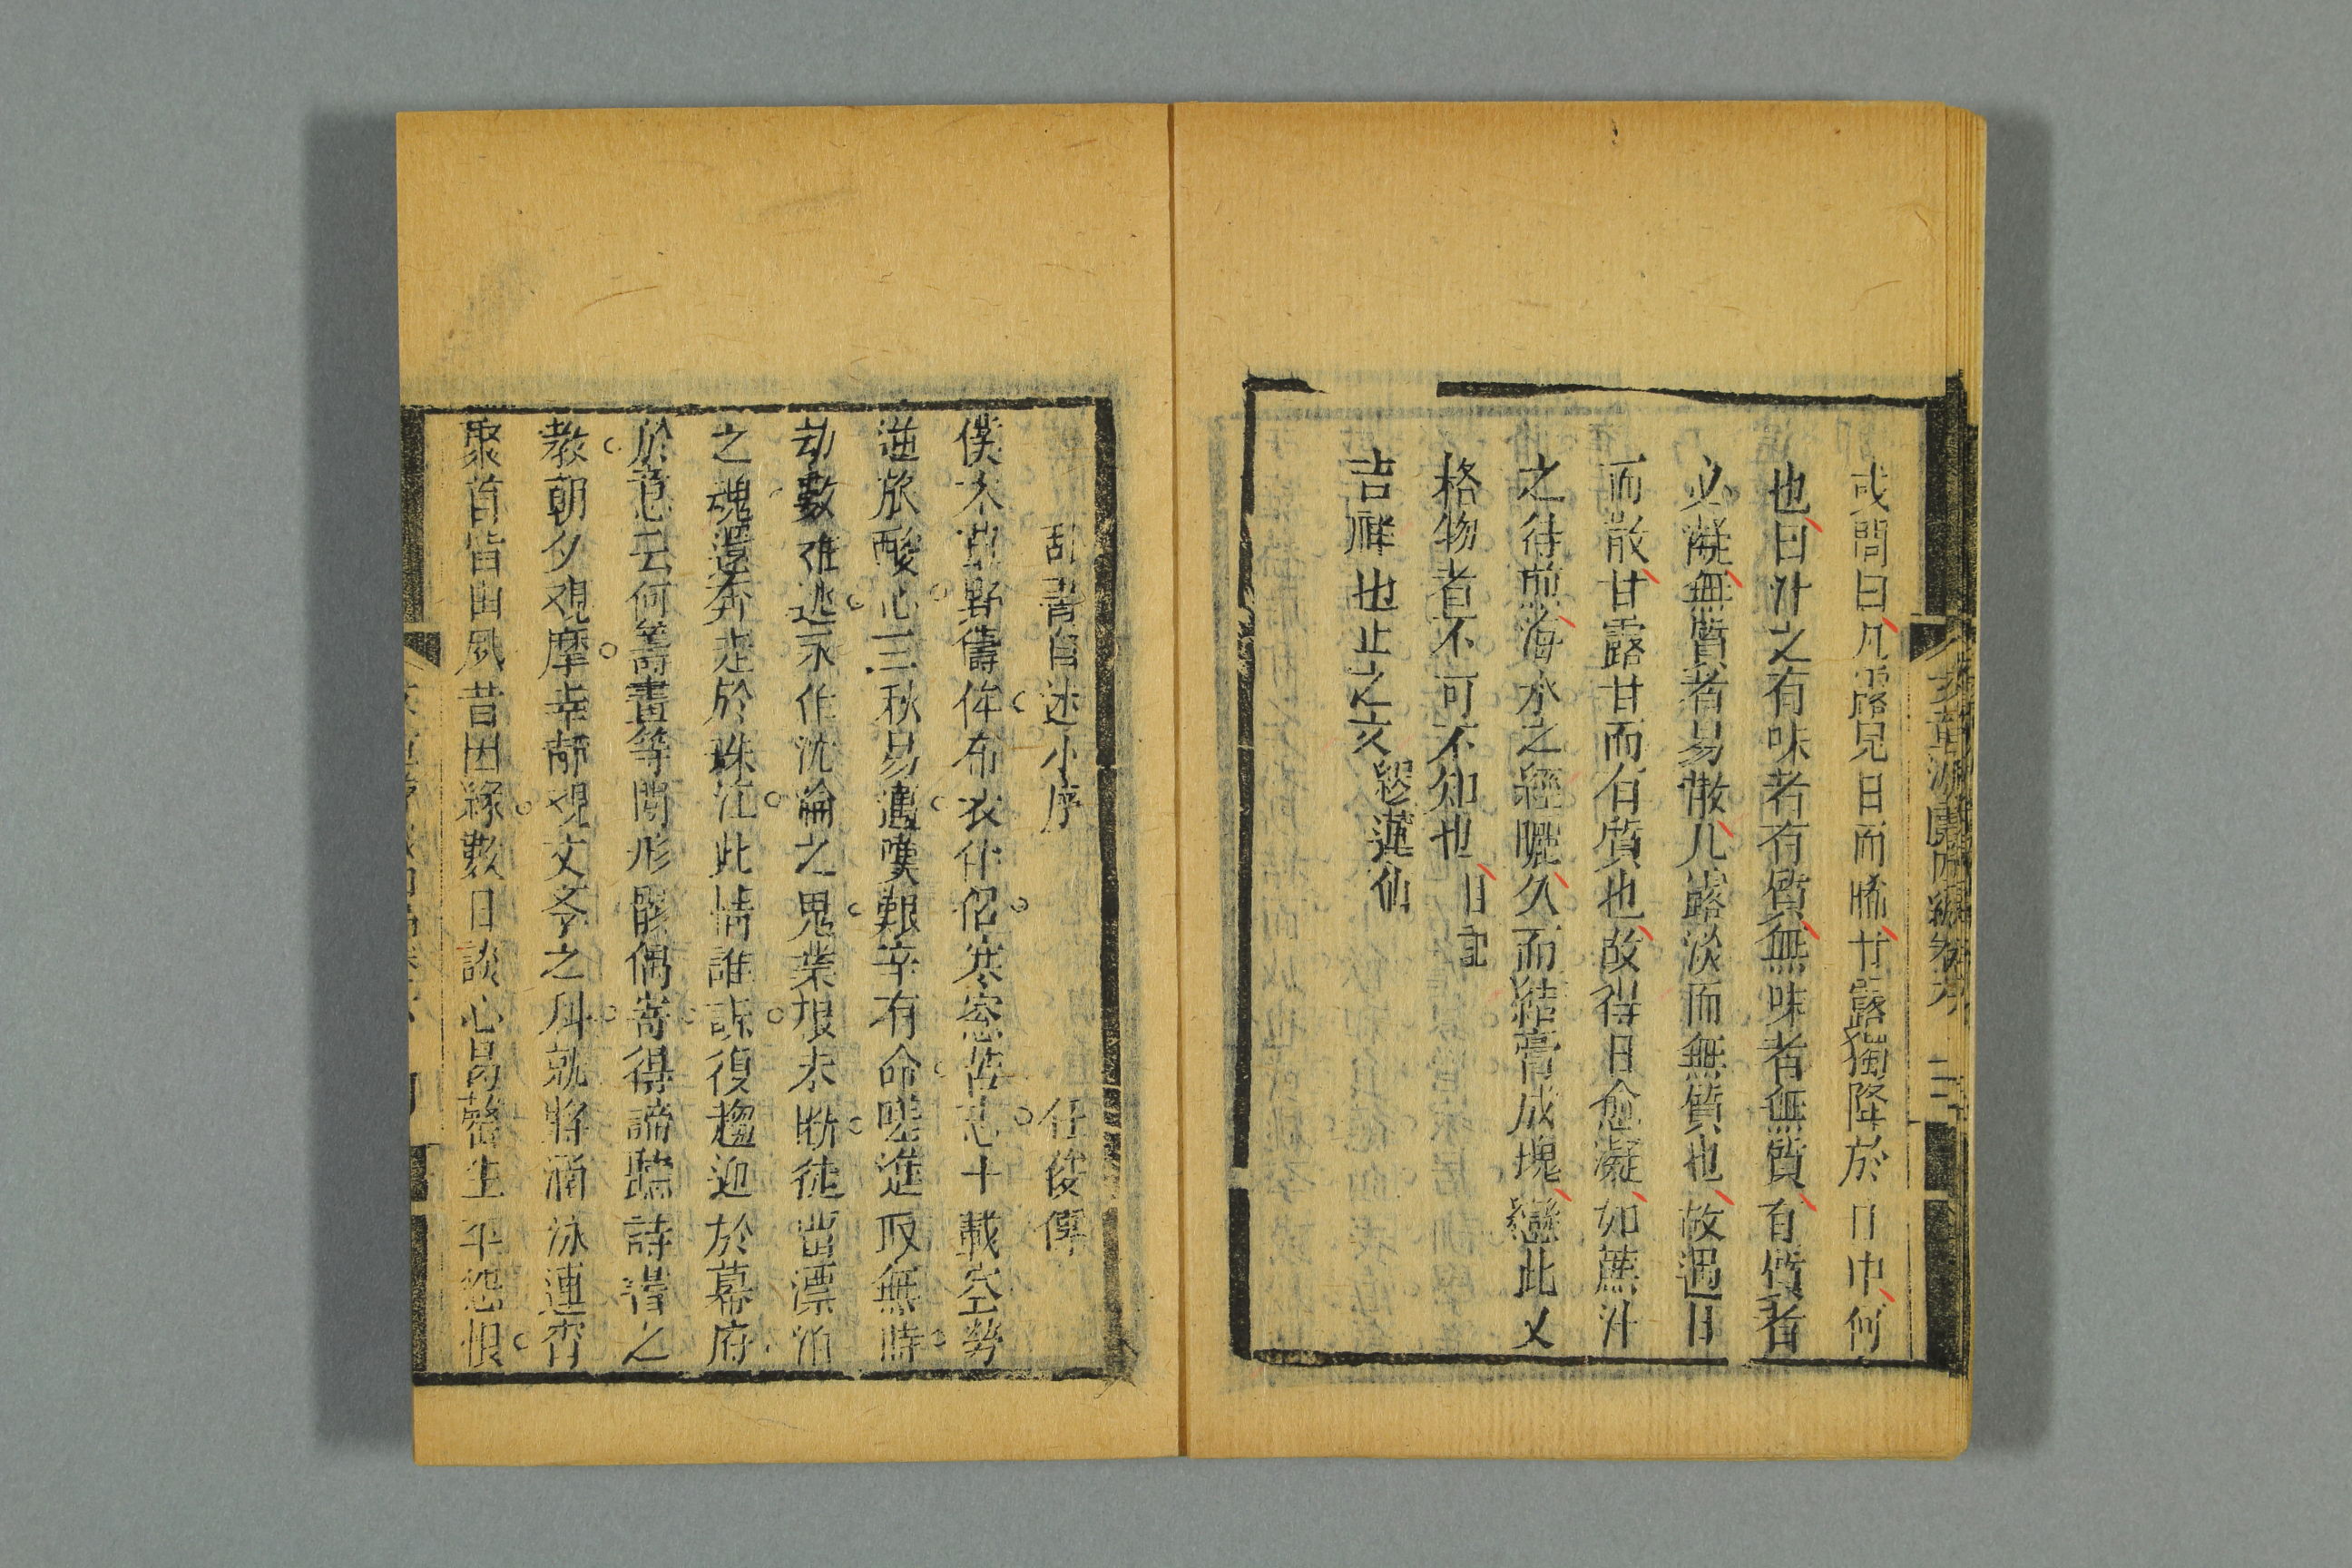 或問曰凡露見日而晞甘露獨降於日中何
也曰汁之有味者有質無味者無質有質者
必凝無質者易散凡露淡而無質也故遇日
而散甘露甘而有質也故得日愈凝如蔗汁
之待煎海水之經曬久而結膏成塊戀此乂
格物者不可不知也 日記
吉祥也止之亥 蓮仙
乱書自述小序 任俊傑
僕本 野儔侔布衣什侶寒窓苦志十載空勞
逆旅酸心三秋易邁嘆艱辛有命嗟進取無時
劫數难逃永作沈淪之鬼業根未断徒畄漂泊
之魂還奔走於珠江此情誰訴復趨迎於幕府
於意云何籌畫等閒形骸偶寄得諦 詩 之
教朝夕观摩幸 观文 之科就將 泳連宵
聚首皆由夙昔因緣數日談心昌 生平怨恨